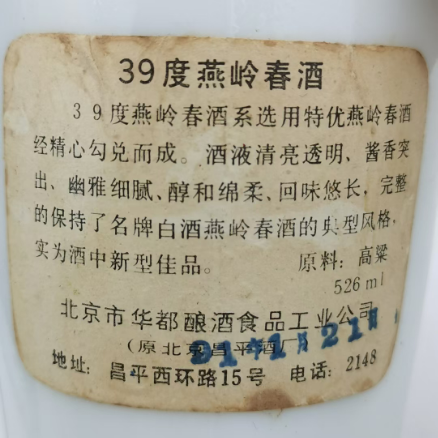 39度燕岭春酒
39度燕岭春酒系选用特优燕岭春酒
经精心勾兑而成。酒液清亮透明、酱香突
出、幽雅细腻、醇和绵柔、回味悠长，完整
的保持了名牌白酒燕岭春酒的典型风格，
实为酒中新型佳品。 原料：高粱
526ml
北京市华都酿酒食品工业公司
（原北京昌平酒厂
91年1月21日
地址：昌平西环路15号 电话：2148